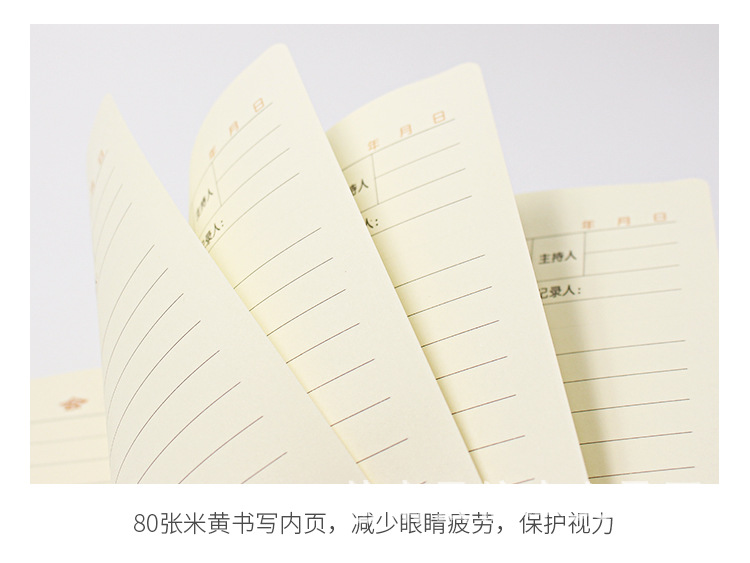 年 月 日
主持人
记录人：
年 月 日
持人
人：
年 月 日
主持人
记录人：
日
80张米黄书写内页，减少眼睛疲劳，保护视力